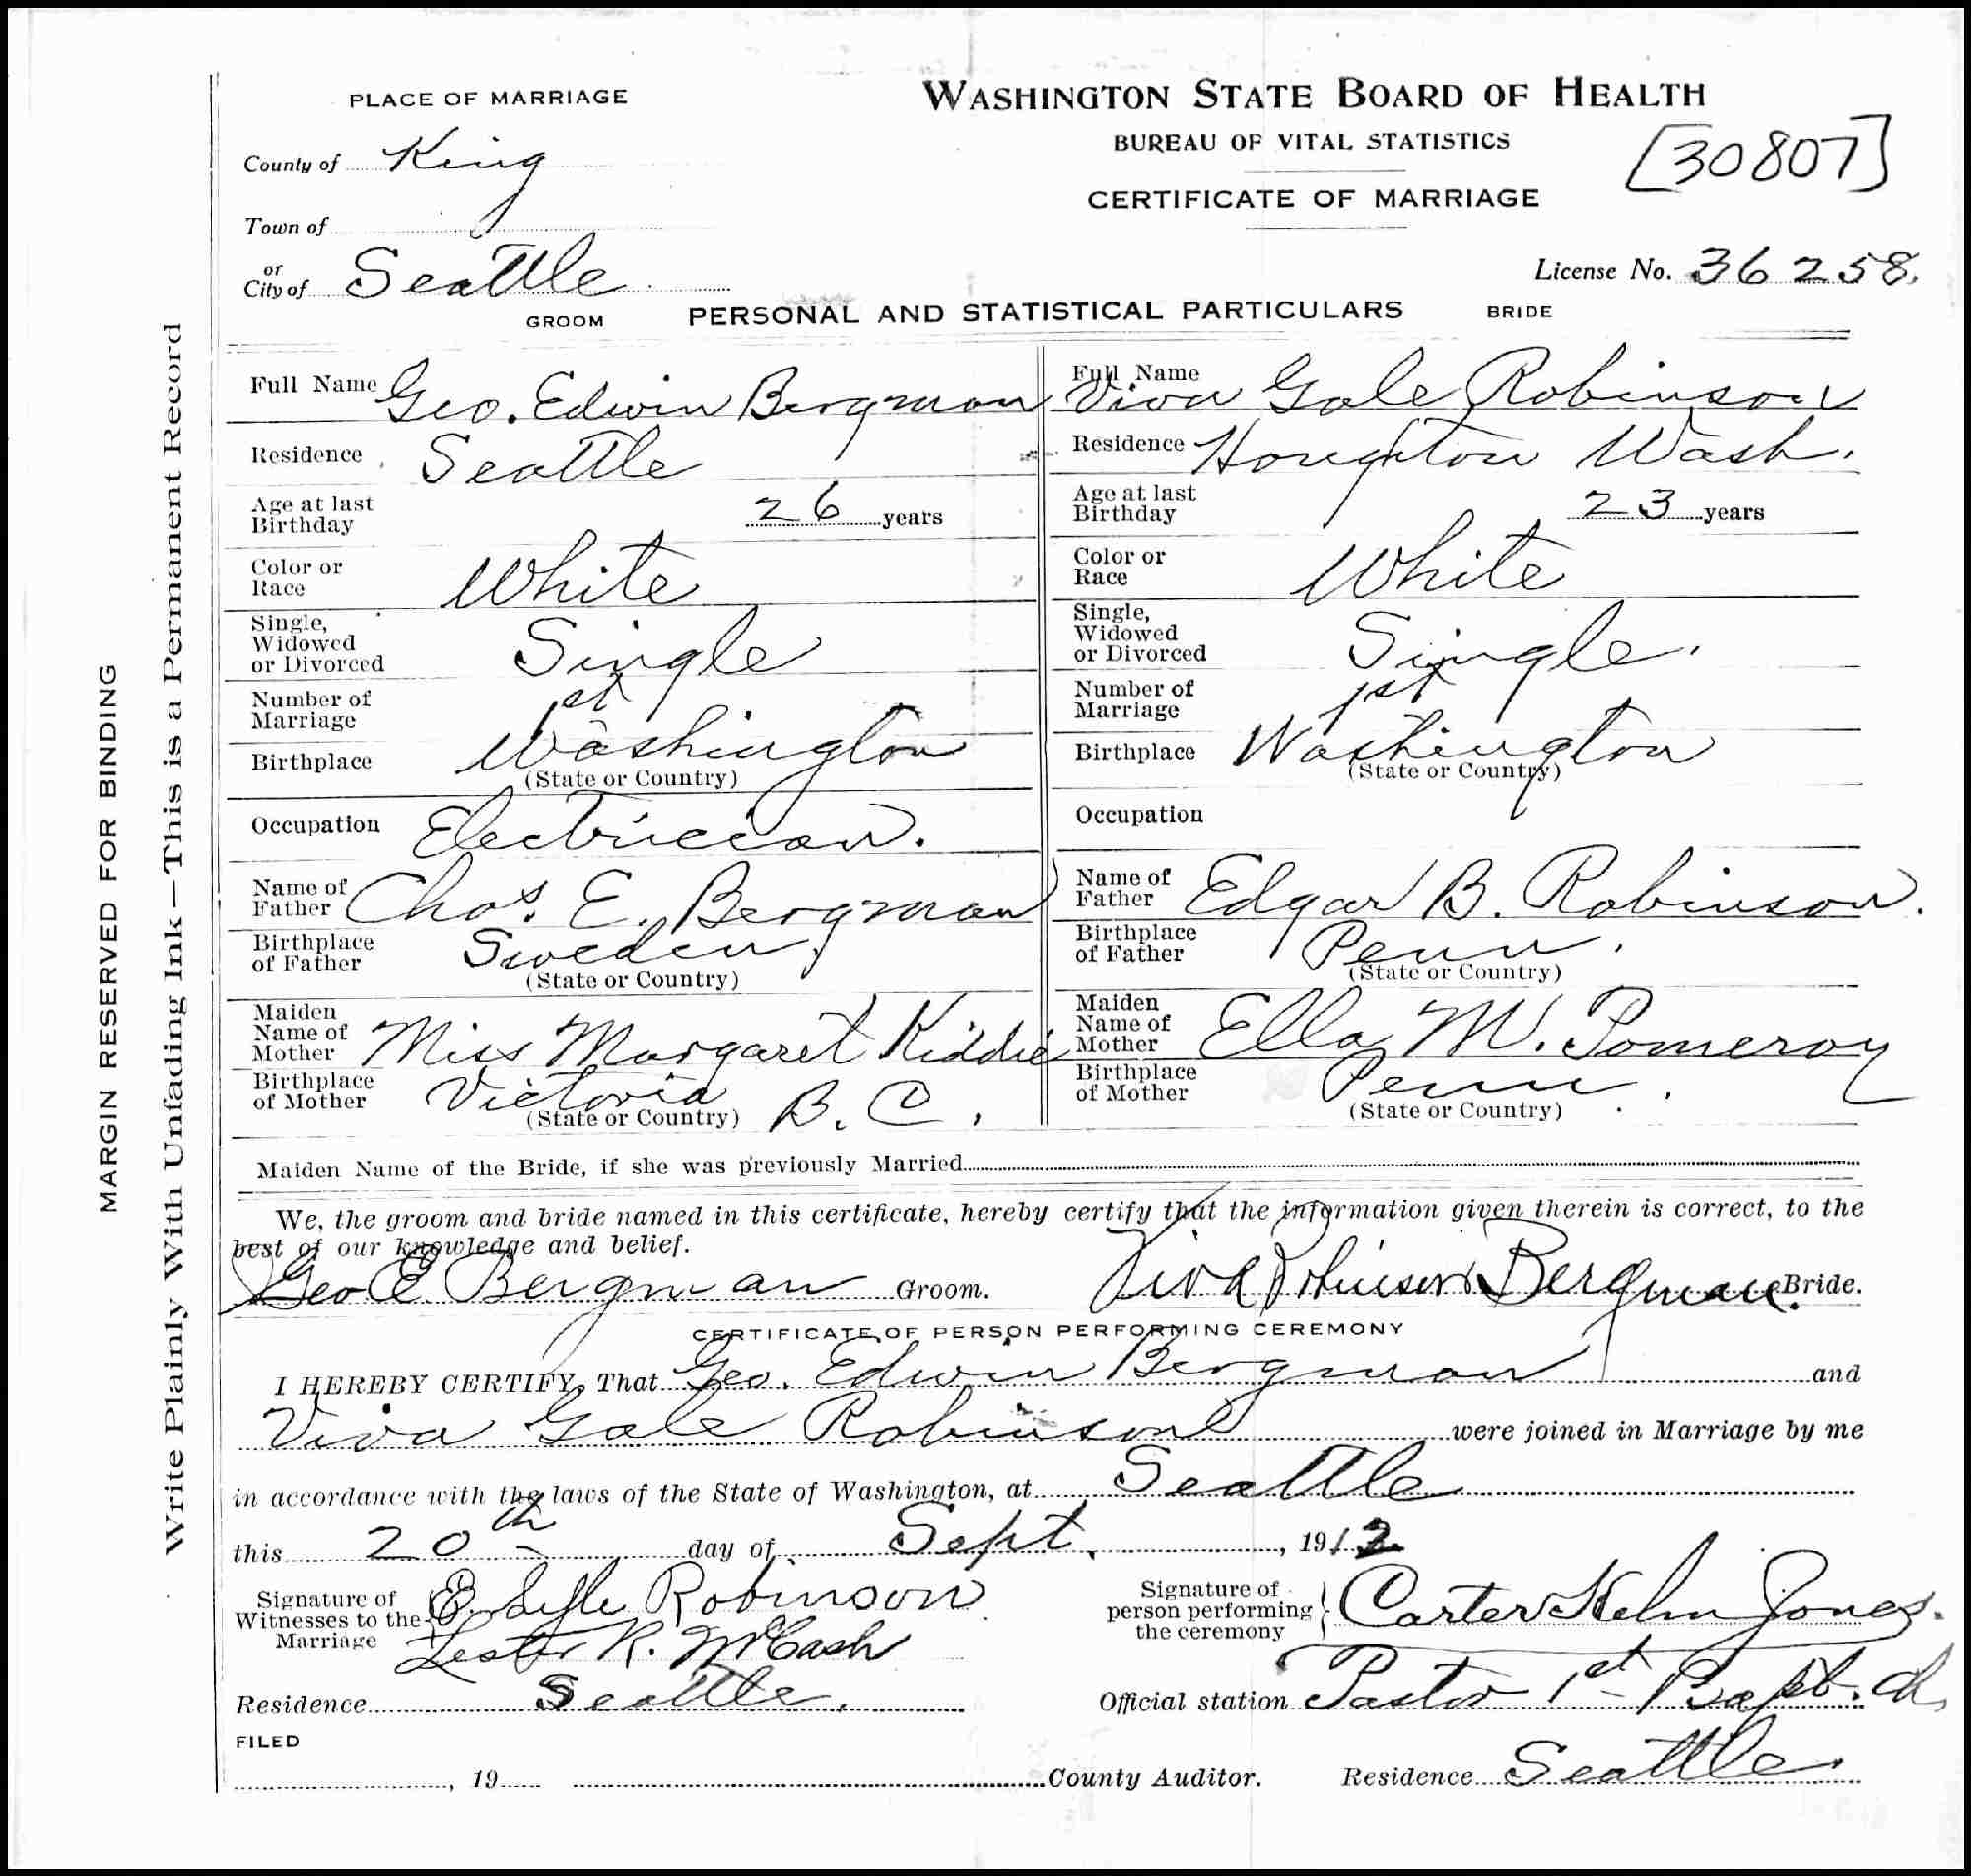 PLACE OF MARRIAGE
County of King
Town of
or
City of Seattle
WASHINGTON STATE BOARD OF HEALTH
BUREAU OF VITAL STATISTICS
[30807]
CERTIFICATE OF MARRIAGE
License No. 36258.
GROOM PERSONAL AND STATISTICAL PARTICULARS BRIDE
Full Name Geo. Edwin Bergman
Residence Seattle
Age at last Birthday 26 years
Color or Race White
Single, Widowed or Divorced Single
Number of Marriage 1st
Birthplace Washington
(State or Country)
Occupation Electrician.
Name of Father Chas. E. Bergman
Birthplace of Father Sweden
(State or Country)
Maiden Name of Mother Miss Margaret Kiddie
Birthplace of Mother Victoria B. C.
(State or Country)
Full Name Viva Gale Robinson
Residence Houghton Wash.
Age at last Birthday 23 years
Color or Race White
Single, Widowed or Divorced Single.
Number of Marriage 1st
Birthplace Washington
(State or Country)
Occupation
Name of Father Edgar B. Robinson.
Birthplace of Father Penn.
(State or Country)
Maiden Name of Mother Ella M. Pomeroy
Birthplace of Mother Penn.
(State or Country)
Maiden Name of the Bride, if she was previously Married
We, the groom and bride named in this certificate, hereby certify that the information given therein is correct, to the
best of our knowledge and belief.
Geo E. Bergman Groom. Viva Robinson Bergman. Bride.
CERTIFICATE OF PERSON PERFORMING CEREMONY
I HEREBY CERTIFY, That Geo. Edwin Bergman and
Viva Gale Robinson were joined in Marriage by me
in accordance with the laws of the State of Washington, at Seattle
this 20th day of Sept., 1912
Signature of Witnesses to the Marriage E. Robinson
Lester R. McCash
Residence Seattle.
FILED
, 19 County Auditor.
Signature of person performing the ceremony } Carter Helm Jones.
Official station Pastor 1st Bapt. Ch.
Residence Seattle.
MARGIN RESERVED FOR BINDING
Write Plainly With Unfading Ink—This is a Permanent Record